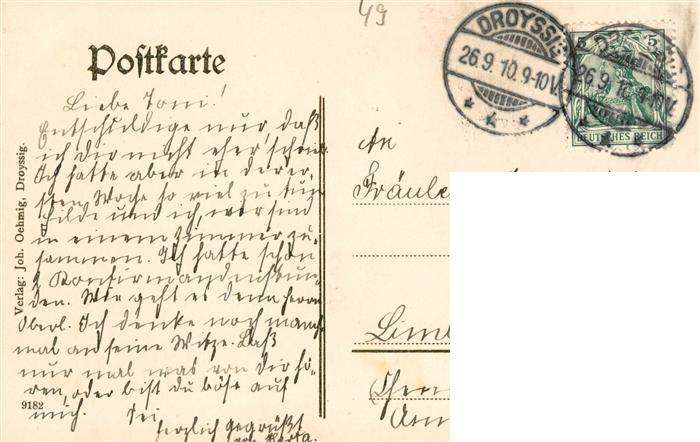 49
DROYSSIG
26.9.10.9-10V.
5 5
26.9.10.9-10V.
DEUTSCHES REICH
Postkarte
Liebe Toni!
Entschuldige nur daß
ich dir nicht eher schrieb
Ich hatte aber in der er-
sten Woche so viel zu tun
Hilde und ich, wir sind
in einem Zimmer zu-
sammen. Ich hatte schon
2 Konfirmandenstun-
den. Wie geht es denn Herrn
Oberl. Ich denke noch manch-
mal an seine Witze. Laß
nur mal was von Dir hö-
ren, oder bist du böse auf
mich. Sei
herzlich gegrüßt
Verlag: Joh. Oehmig, Droyssig.
9182
An
Fräule
Chem